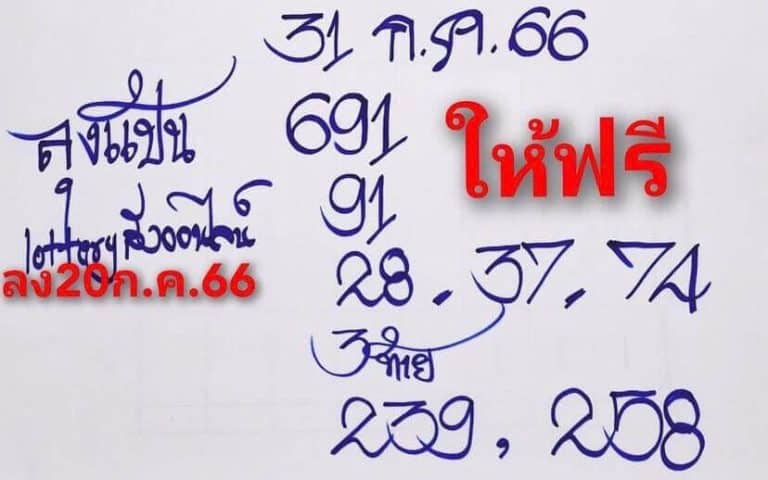 31 ก.ค.66
ลุงแป้น
691
ให้ฟรี
91
lottery สื่อออนไลน์
ลง20ก.ค.66
28.37.74
3ท้าย
239, 258